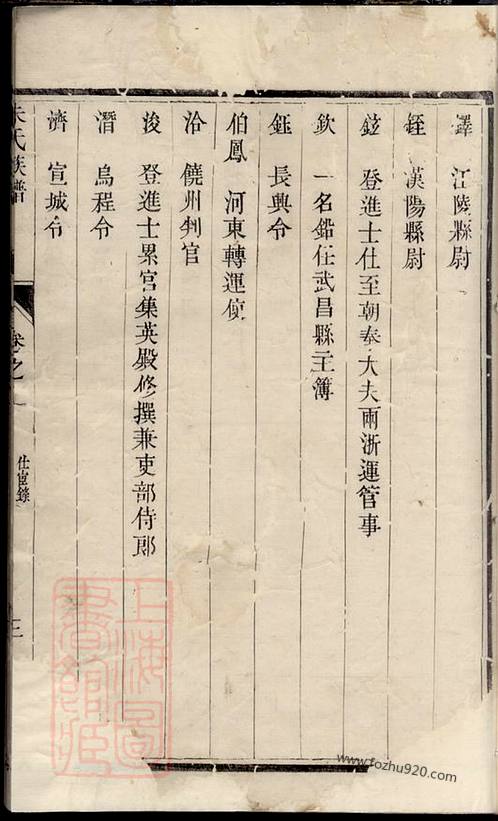 鐸 江陵縣尉
銍 漢陽縣尉
鉉 登進士仕至朝奉大夫兩浙運管事
欽 一名鉛任武昌縣主簿
鈺 長興令
伯鳳 河東轉運使
洽 饒州判官
浚 登進士累官集英殿修撰兼吏部侍郎
潛 烏程令
濟 宣城令
朱氏族譜
卷之一
仕宦錄
三
上海圖書館藏
www.fozhu920.com